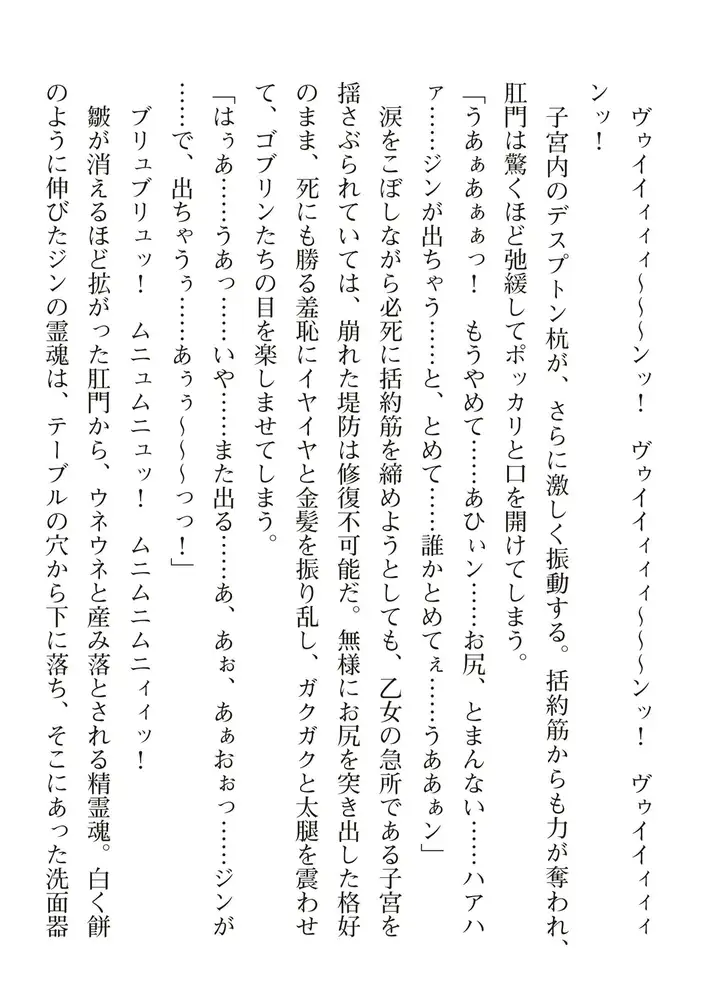 ヴゥイイィィィ～～～ンッ！　ヴゥイイィィィ～～～ンッ！　ヴゥイイィィィ
ンッ！
　子宮内のデスプトン杭が、さらに激しく振動する。括約筋からも力が奪われ、
肛門は驚くほど弛緩してポッカリと口を開けてしまう。
「うあぁあぁぁっ！　もうやめて……あひぃン……お尻、とまんない……ハアハ
ァ……ジンが出ちゃう……と、とめて……誰かとめてぇ……うああぁン」
　涙をこぼしながら必死に括約筋を締めようとしても、乙女の急所である子宮を
揺さぶられていては、崩れた堤防は修復不可能だ。無様にお尻を突き出した格好
のまま、死にも勝る羞恥にイヤイヤと金髪を振り乱し、ガクガクと太腿を震わせ
て、ゴブリンたちの目を楽しませてしまう。
「はぅあ……うあっ……いや……また出る……あ、あぉ、あぁおぉっ……ジンが
……で、出ちゃうぅ……あぅぅ～～～っっ！」
　ブリュブリュッ！　ムニュムニュッ！　ムニムニムニィィッ！
　皺が消えるほど拡がった肛門から、ウネウネと産み落とされる精霊魂。白く餅
のように伸びたジンの霊魂は、テーブルの穴から下に落ち、そこにあった洗面器